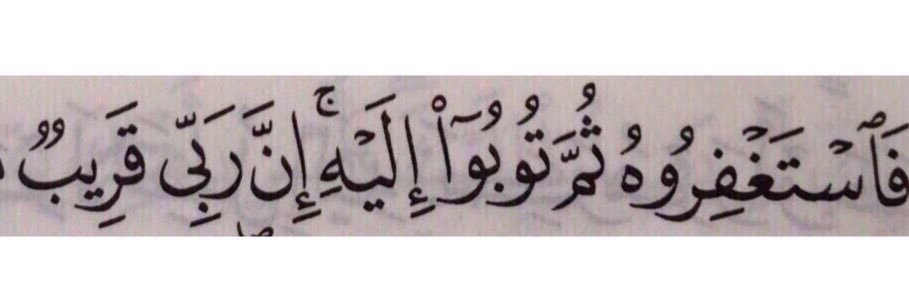 فَٱسۡتَغۡفِرُوهُ ثُمَّ تُوبُوٓاْ إِلَيۡهِۚ إِنَّ رَبِّي قَرِيبٞ